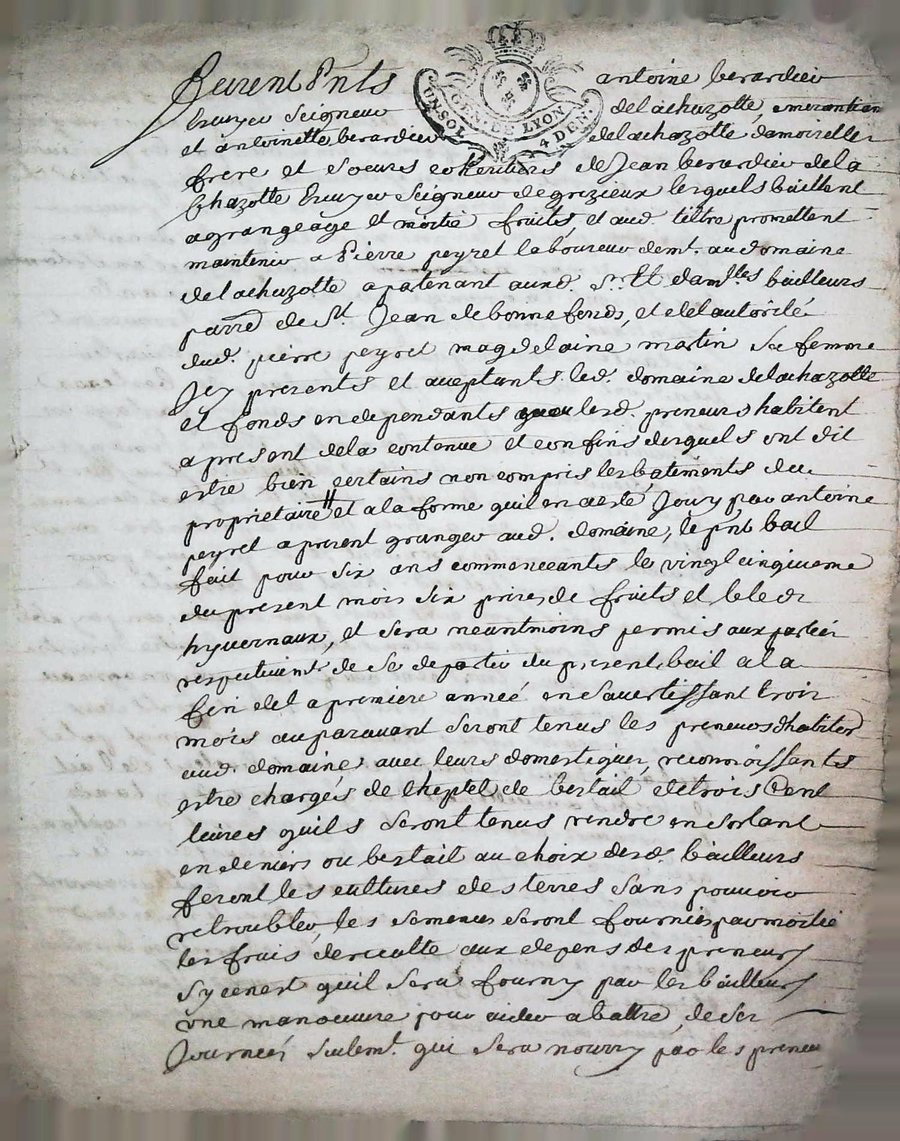 furent Pnts antoine berardier
Escuyer Seigneur delachazotte, emerantiane
et antoinette berardier delachazotte damoiselles
GEN. DE LYON
UN SOL 4 DEN.
frere et soeurs coheritiers de Jean berardier de la
Chazotte Escuyer Seigneur de grezieux lesquels baillent
agrangeage et moitié fruits, et aud. tiltre promettent
maintenir a Pierre peyret laboureur demt. au domaine
delachazotte apatenant auxd. Sr. Et damlles bailleurs
parre de St. Jean de bonnefonds, et de lautorité
dud. pierre peyret magdelaine martin sa femme
Icy presents et acceptants led. domaine delachazotte
et fonds en dependants lesd. preneurs habitent
apresent de la contenue et confins desquels ont dit
estre bien certains non compris les batiments du
proprietaire et a la forme quil en a esté Jouy par antoine
peyret apresent granger aud. domaine, le pnt bail
fait pour six ans commenceants le vingtcinquieme
du present mois six prises de fruits et bleds
hyvernaux, et sera neantmoins permis aux parties
respectivemt. de se departir du present bail a la
fin de la premiere année en savertissant trois
mois auparavant seront tenus les preneurs dhabiter
aud. domaine avec leurs domestiques, reconnoissants
estre chargés de cheptel de bestail de trois Cent
livres quils seront tenus rendre en sortant
en deniers ou bestail au choix desd. bailleurs
feront les cultures des terres sans pouvoir
retroubler, les semences seront fournies par moitié
les frais de recolte aux depens des preneurs
Sy ce nest quil sera fourny par les bailleurs
une manoeuvre pour aider abattre, de ses
Journées seulemt. qui sera nourry par les preneurs